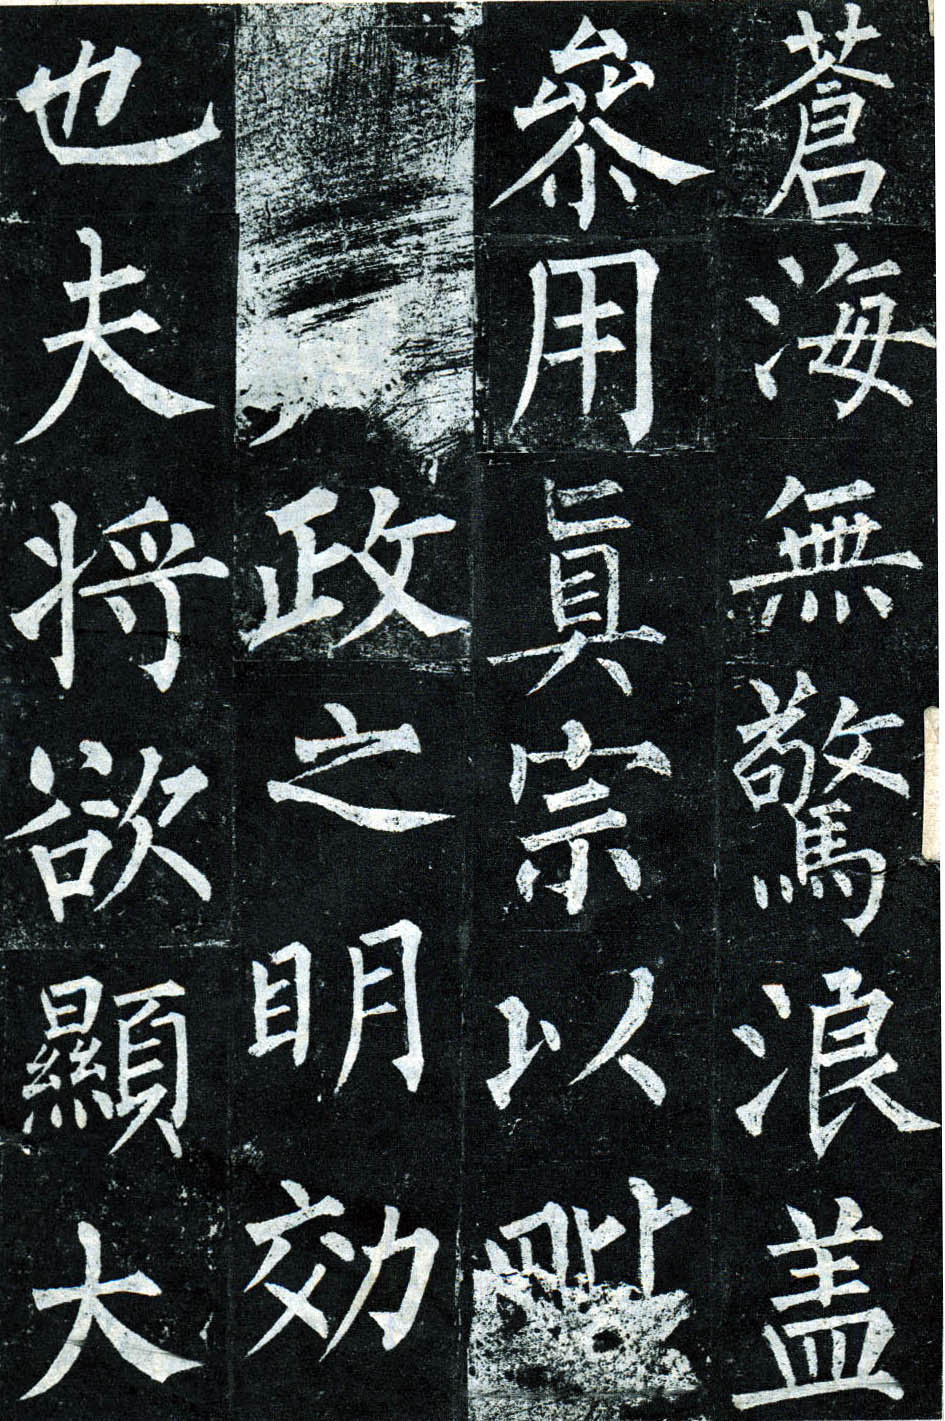 蒼海無驚浪盖
叅用眞宗以毗
政之眀効
也夫將欲顯大